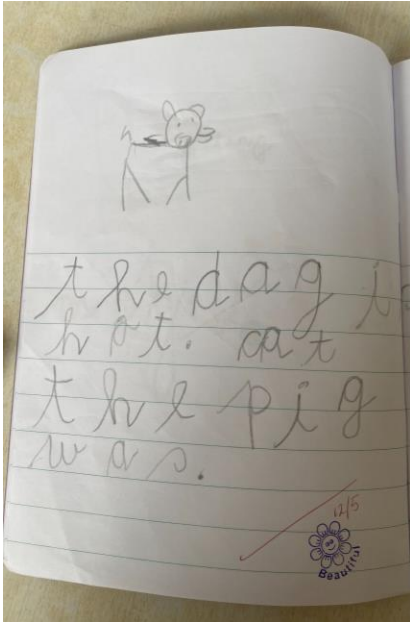 the dag is
hat. cat
the pig
was.
12/5
Beautiful